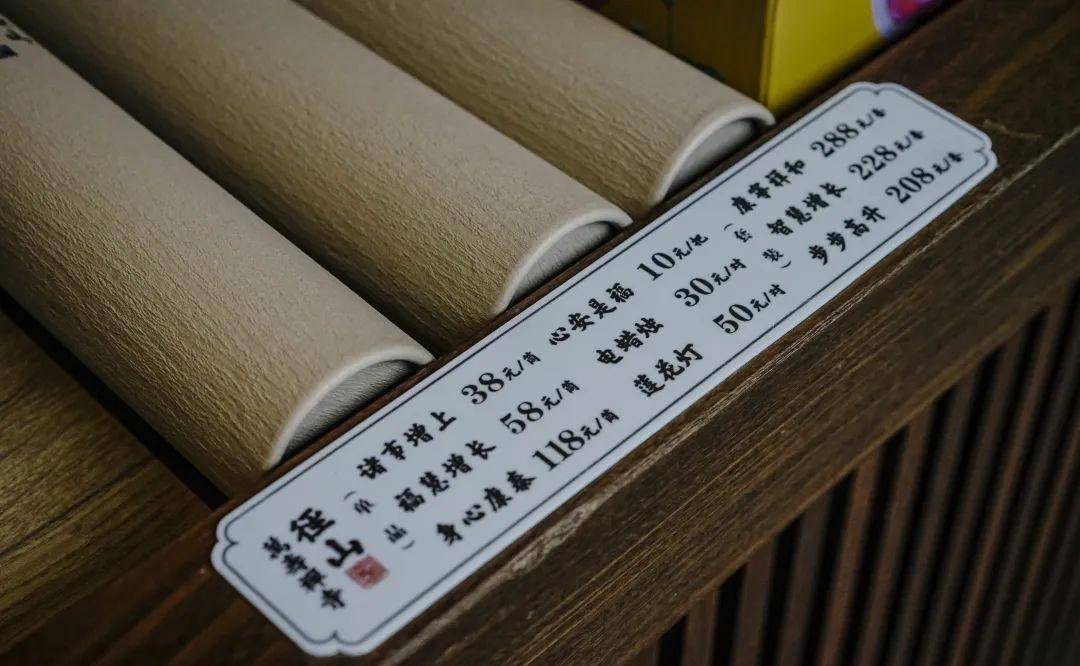 径山
萬壽禪寺
(单品)
诸事增上 38元/筒
福慧增长 58元/筒
身心康泰 118元/筒
心安是福 10元/把
电蜡烛 30元/对
莲花灯 50元/对
(套装)
康寧祥和 288元/套
智慧增长 228元/套
步步高升 208元/套